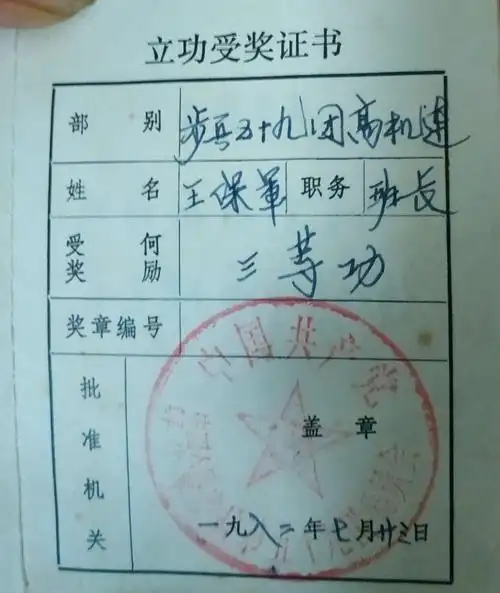 立功受奖证书
部别 步兵五十九团高机连
姓名 王保军 职务 班长
受何奖励 三等功
奖章编号
批准机关
中国共产党
盖章
一九八二年七月廿三日